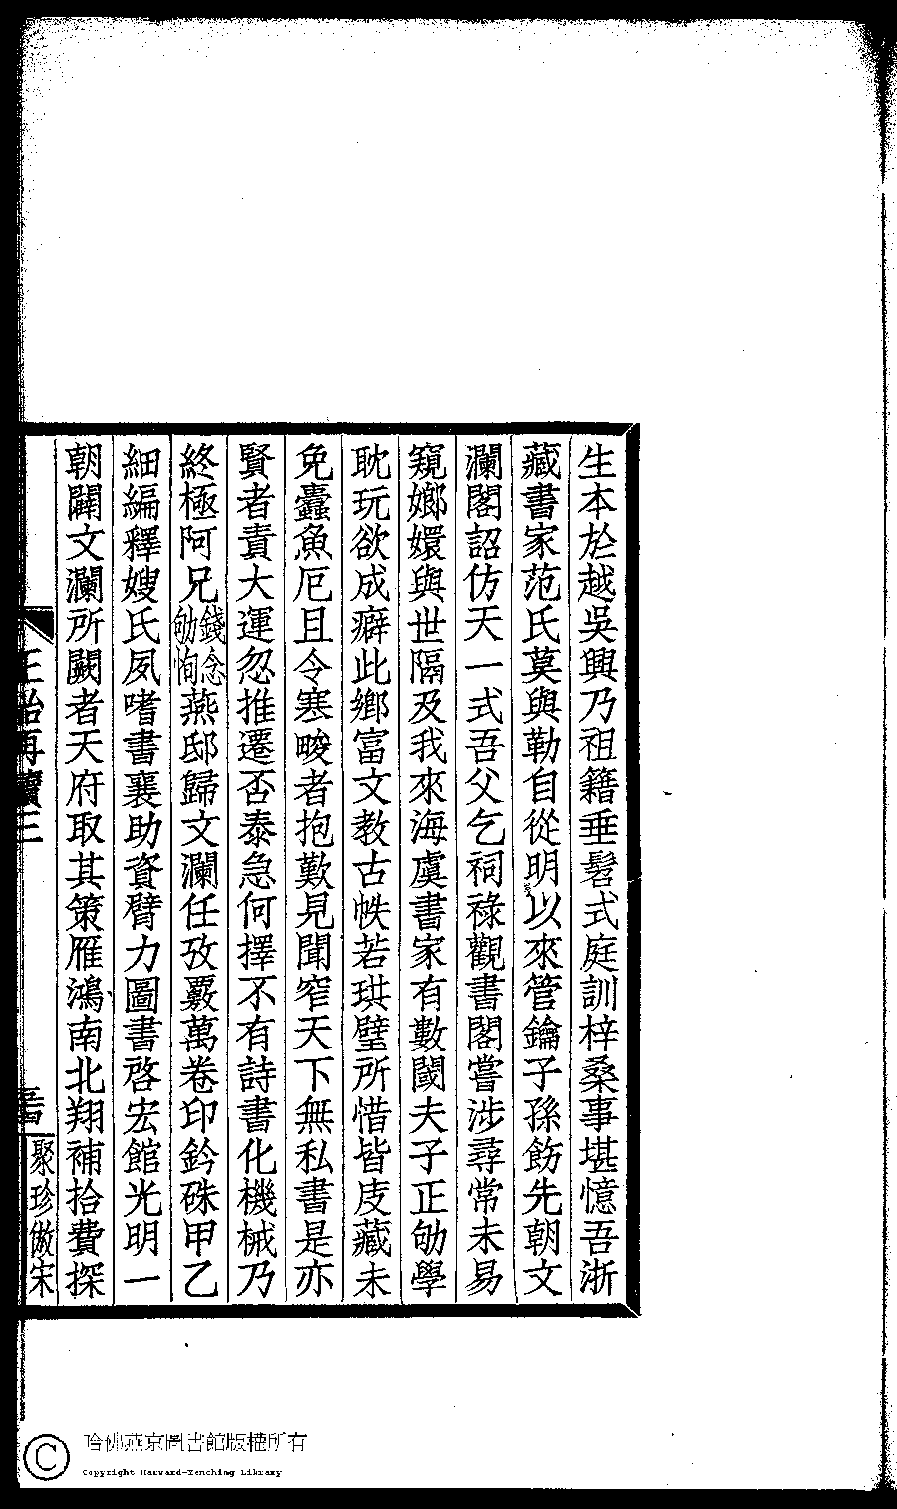 生本於越吳興乃祖籍垂髫式庭訓梓桑事堪憶吾浙
藏書家范氏莫與勒自從明以來管鑰子孫飭先朝文
瀾閣詔仿天一式吾父乞祠祿觀書閣嘗涉尋常未易
窺嫏嬛與世隔及我來海虞書家有數閾夫子正劬學
耽玩欲成癖此鄉富文教古帙若珙璧所惜皆庋藏未
免蠹魚厄且令寒畯者抱歎見聞窄天下無私書是亦
賢者責大運忽推遷否泰急何擇不有詩書化機械乃
終極阿兄錢念劬恂燕邸歸文瀾任攷覈萬卷印鈐硃甲乙
細編釋嫂氏夙嗜書襄助資臂力圖書啓宏館光明一
朝闢文瀾所闕者天府取其策雁鴻南北翔補拾費探
再續三
聚珍倣宋
哈佛燕京圖書館版權所有
Copyright Harvard-Yenching Library